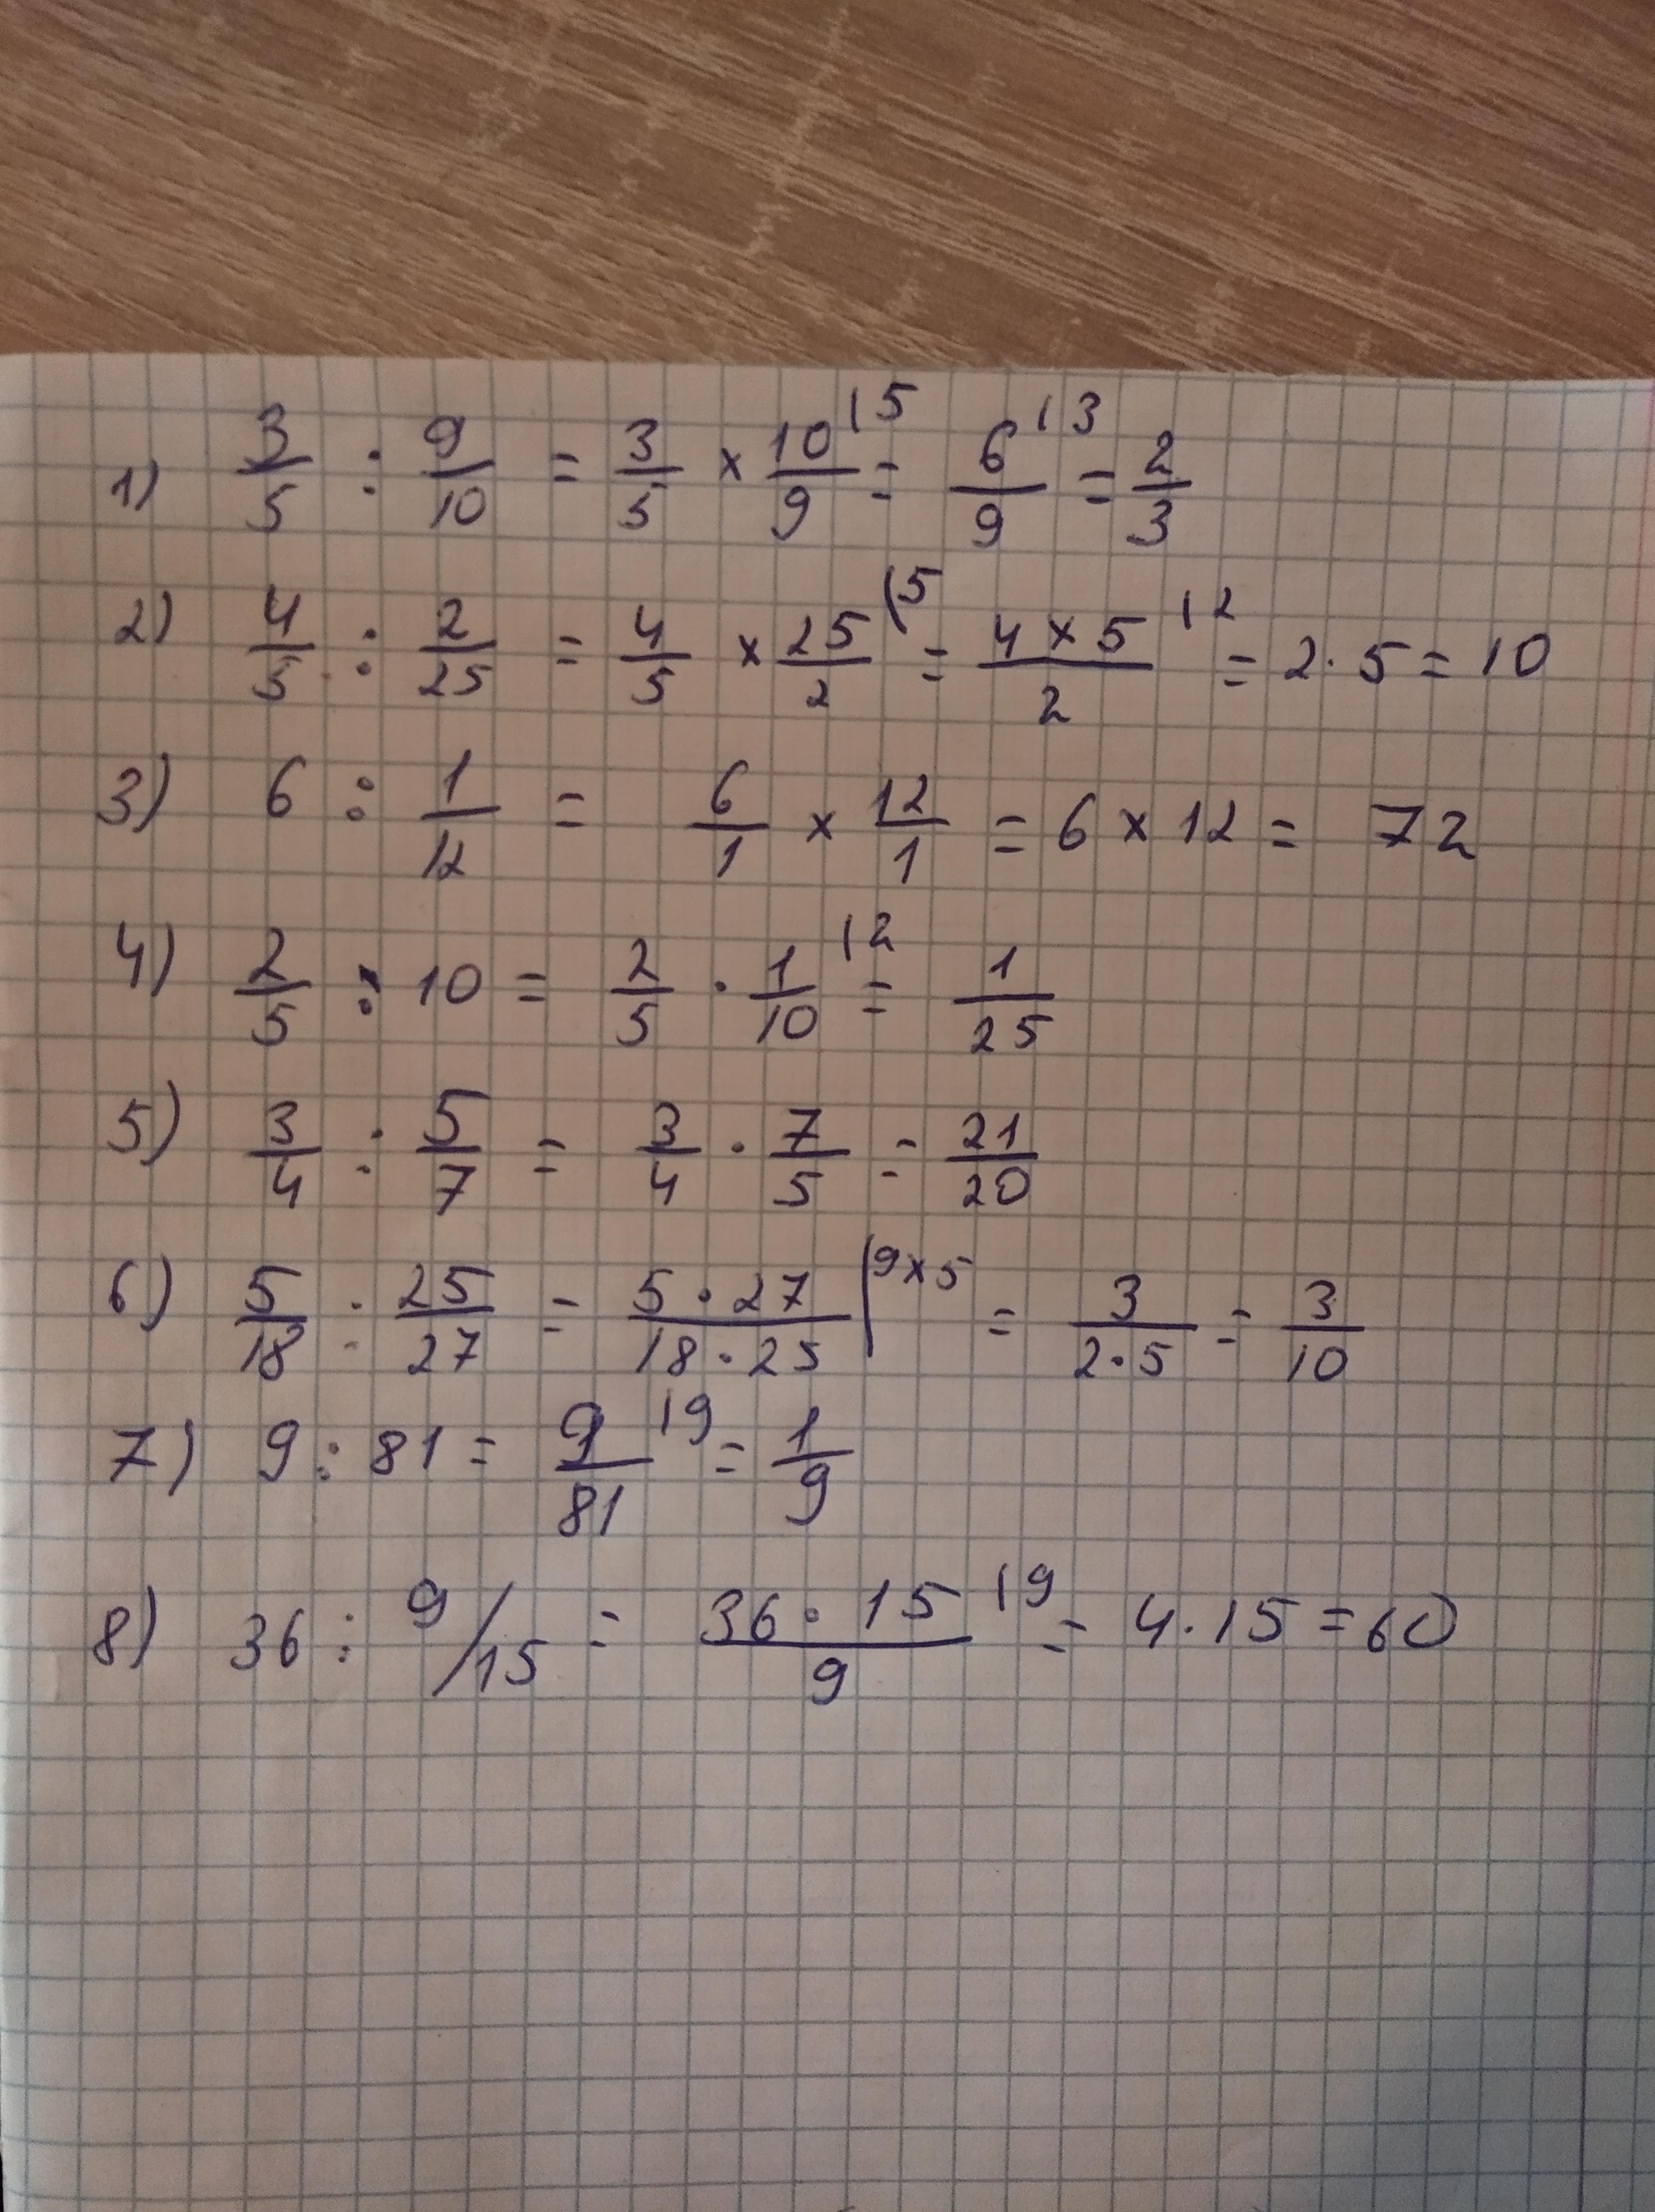 1) 3/5 : 9/10 = 3/5 × 10/9 |5 = 6/9 |3 = 2/3
2) 4/5 : 2/25 = 4/5 × 25/2 |5 = 4 × 5/2 |2 = 2 · 5 = 10
3) 6 : 1/12 = 6/1 × 12/1 = 6 × 12 = 72
4) 2/5 : 10 = 2/5 · 1/10 |2 = 1/25
5) 3/4 : 5/7 = 3/4 · 7/5 = 21/20
6) 5/18 : 25/27 = 5 · 27/18 · 25 |9×5 = 3/2·5 = 3/10
7) 9 : 81 = 9/81 |9 = 1/9
8) 36 : 9/15 = 36 · 15/9 |9 = 4 · 15 = 60